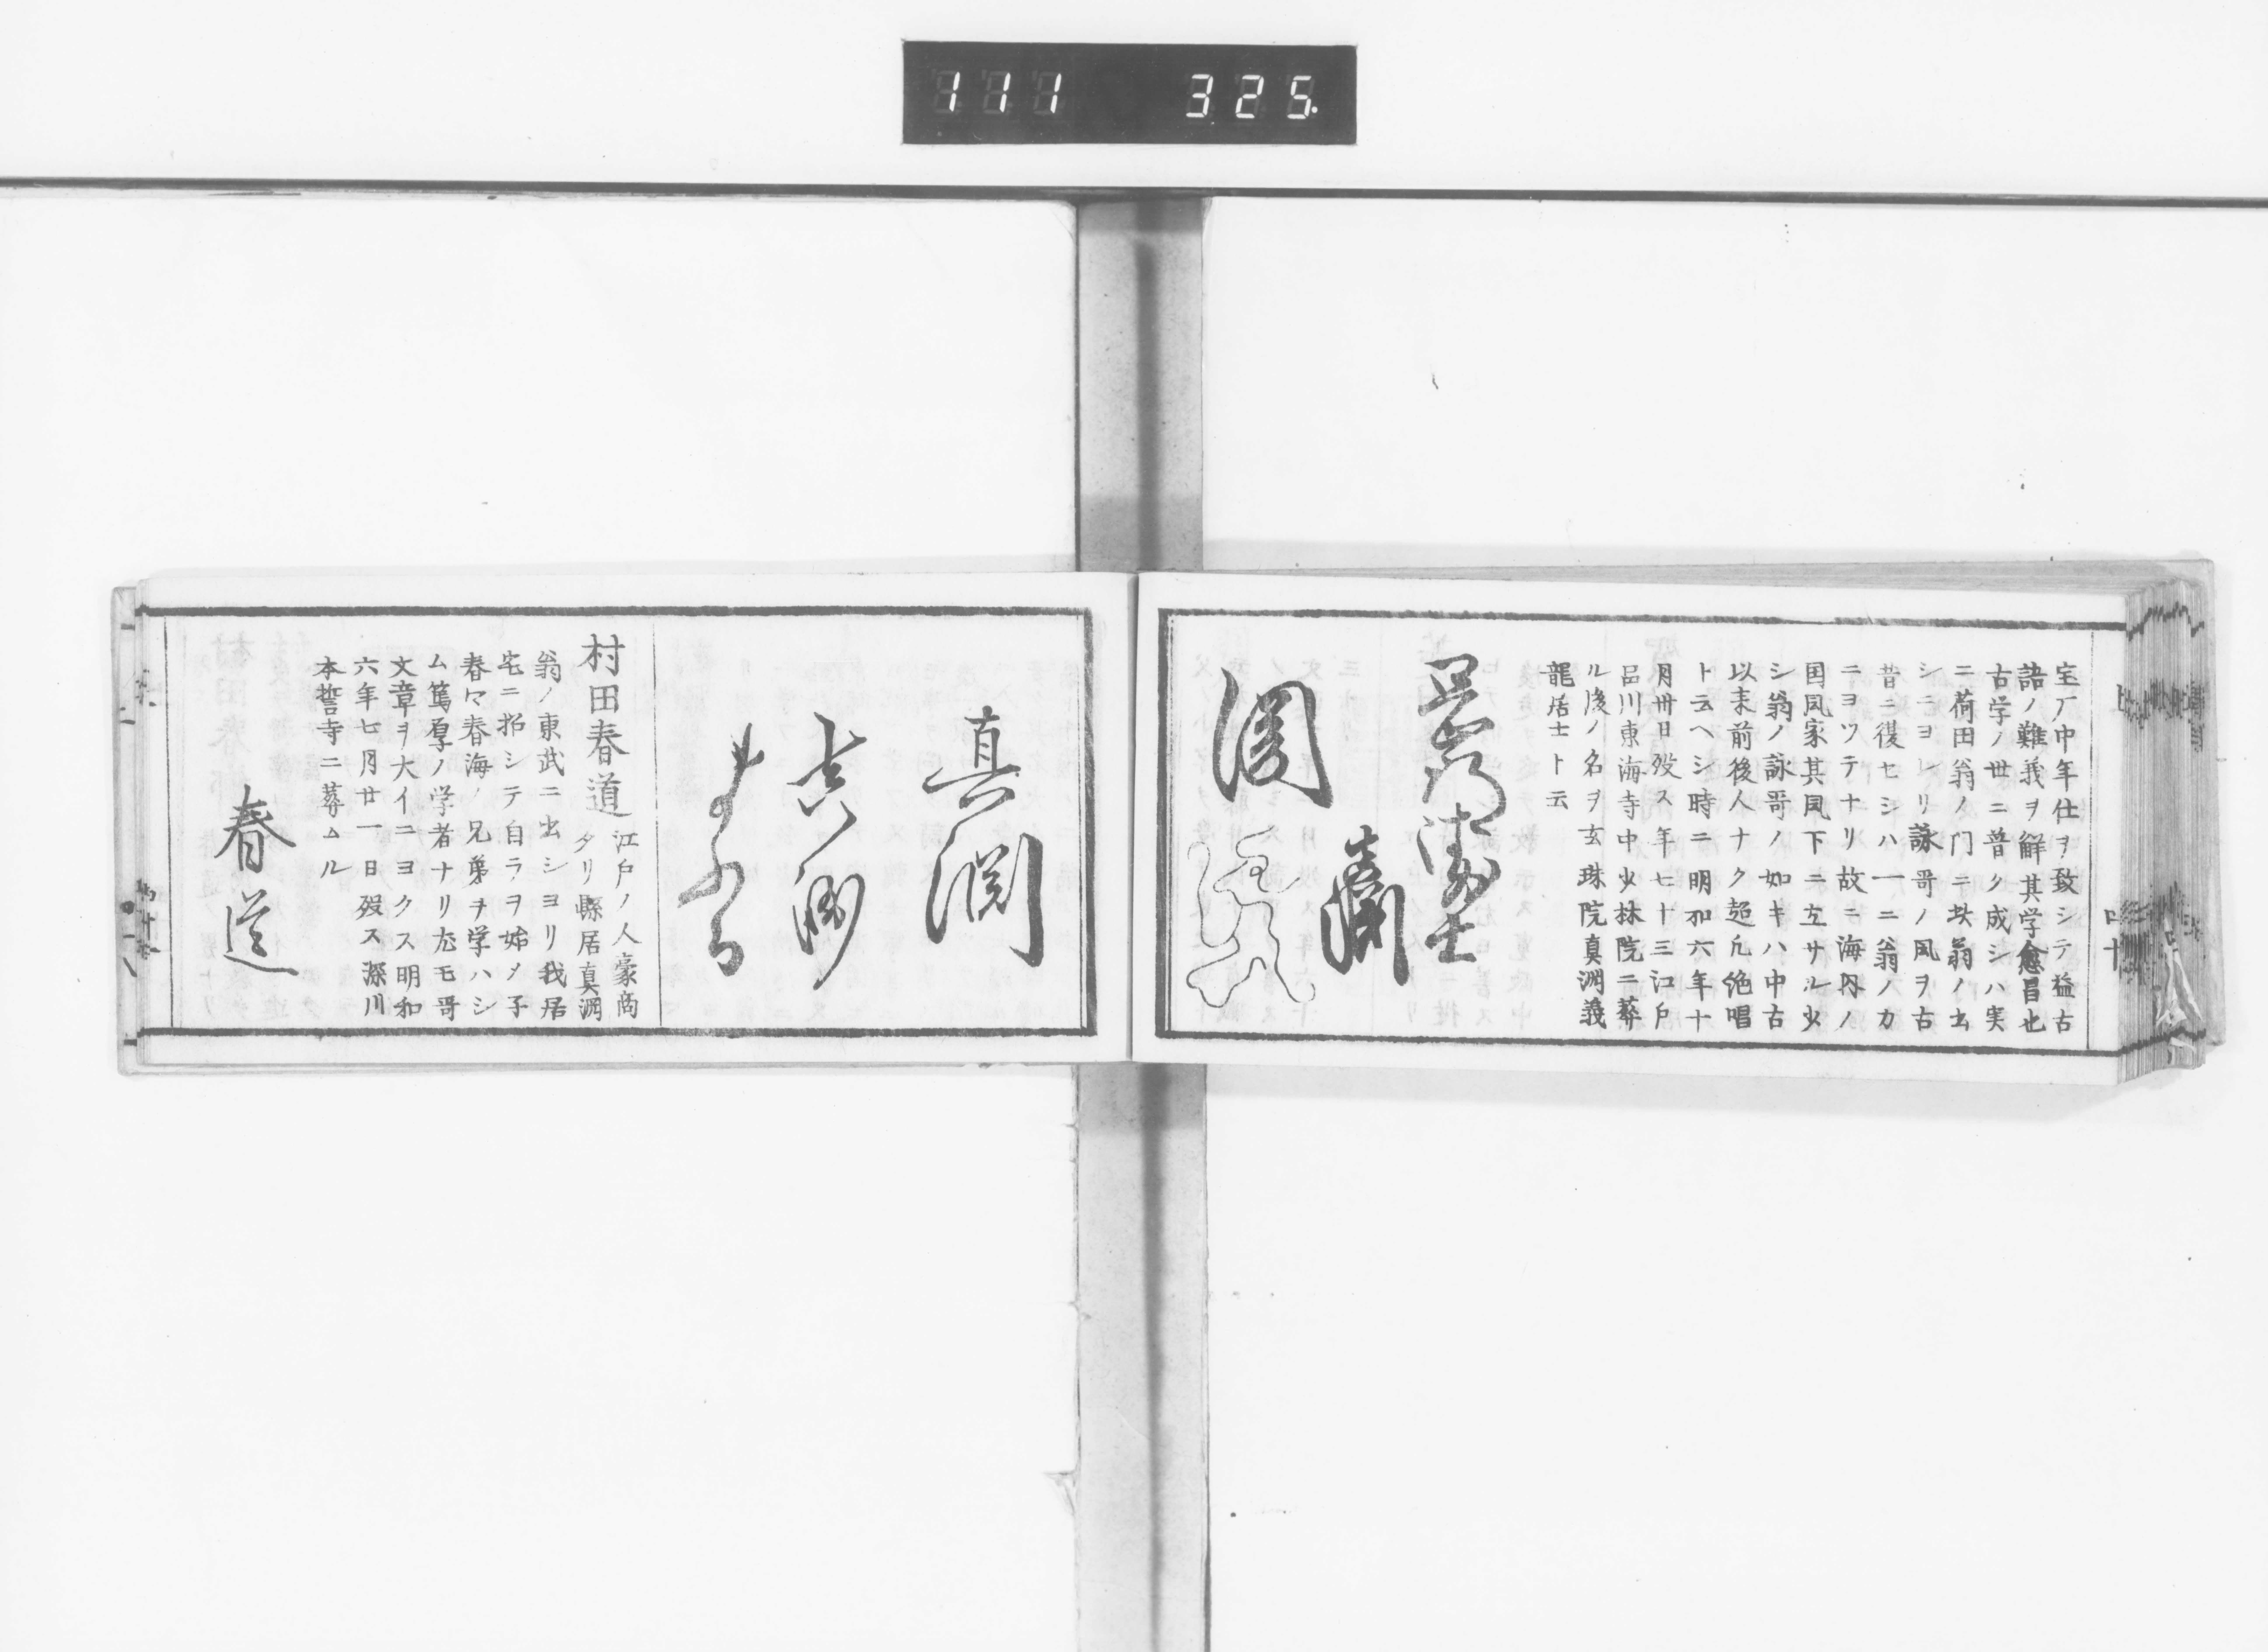 111 325
宝厂中年仕ヲ致シテ益古
語ノ難義ヲ解其学愈昌也
古学ノ世ニ普ク成シハ実
ニ荷田翁ノ门ニ此翁ノ出
シニヨレリ詠哥ノ風ヲ古
昔ニ復セシハ一ニ翁ノカ
ニヨツテナリ故ニ海内ノ
国風家其風下ニ立サル少
シ翁ノ詠哥ノ如キハ中古
以来前後人ナク超凡絶唱
ト云ヘシ時ニ明和六年十
月卅日歿ス年七十三江戸
品川東海寺中少林院ニ葬
ル後ノ名ヲ玄珠院真淵義
龍居士ト云
真淵
村田春道 江戸ノ人豪商
タリ縣居真淵
翁ノ東武ニ出シヨリ我居
宅ニ招シテ自ラヲ始メ子
春々春海ノ兄弟ヲ学ハシ
ム篤厚ノ学者ナリ尤モ哥
文章ヲ大イニヨクス明和
六年七月廿一日歿ス深川
本誓寺ニ葬ムル
春道